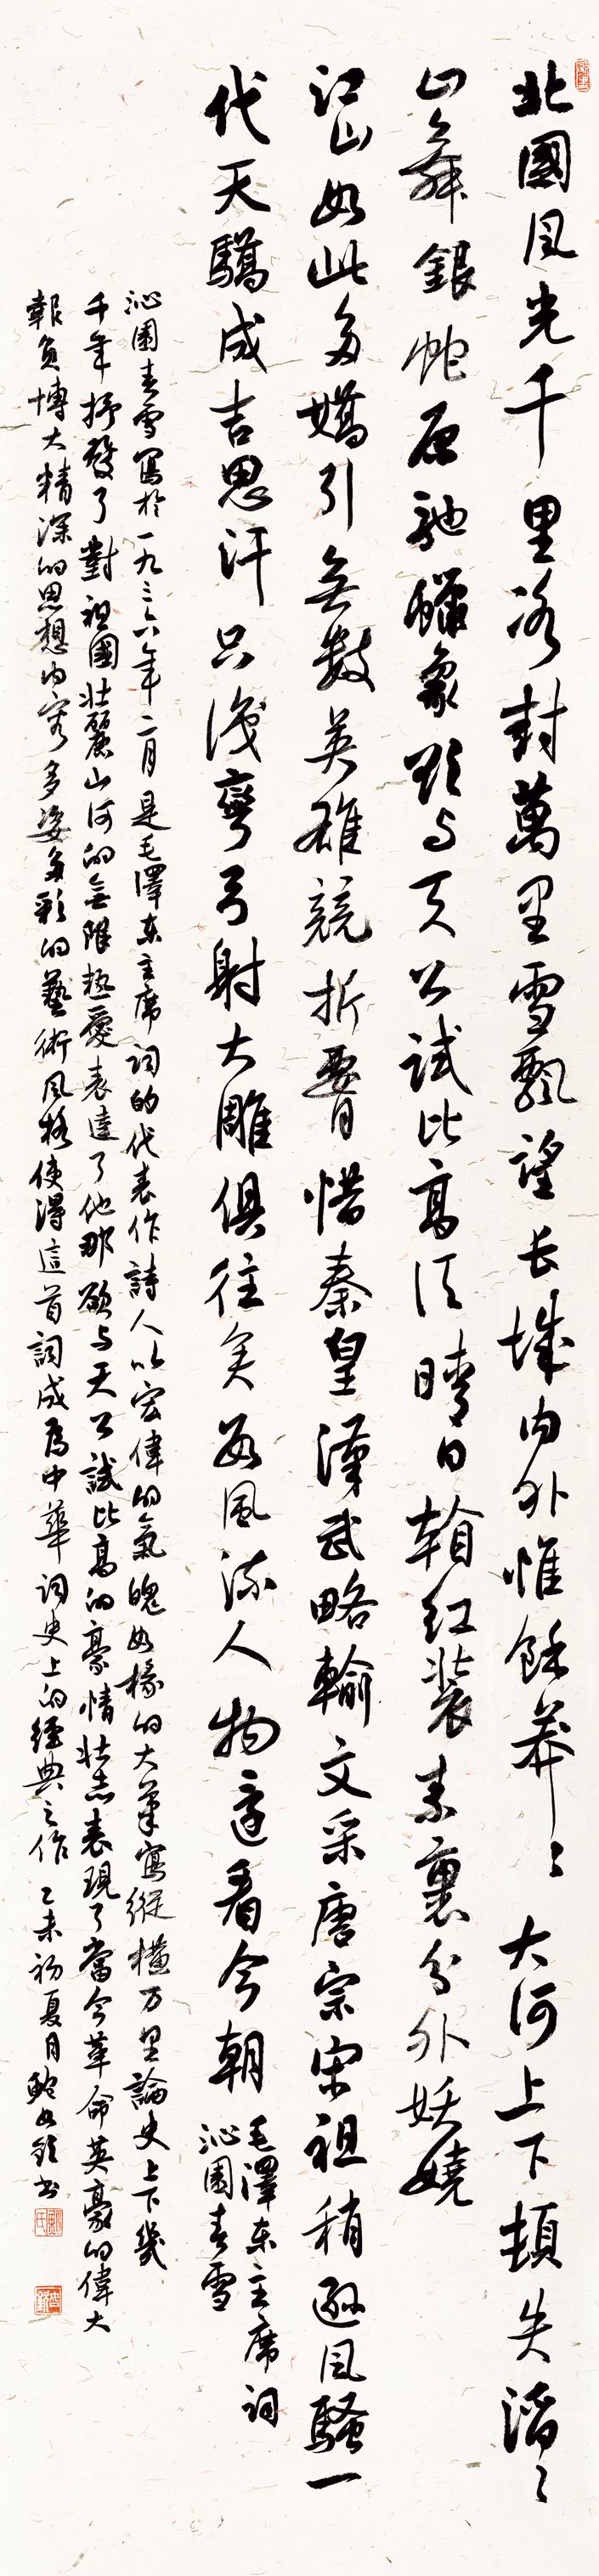 北國風光千里冰封萬里雪飄望長城內外惟餘莽〻大河上下頓失滔〻
山舞銀蛇原馳蠟象欲与天公試比高須晴日看紅裝素裹分外妖嬈
江山如此多嬌引無數英雄競折腰惜秦皇漢武略輸文采唐宗宋祖稍遜風騷一
代天驕成吉思汗只識彎弓射大雕俱往矣數風流人物還看今朝
毛澤東主席詞
沁園春雪
沁園春雪寫於一九三六年二月是毛澤東主席詞的代表作詩人以宏偉的氣魄如椽的大筆寫縱橫万里論史上下幾
千年抒發了對祖國壯麗山河的無限熱愛表達了他那欲与天公試比高的豪情壯志表現了當今革命英豪的偉大
報負博大精深的思想內容多姿多彩的藝術風格使得這首詞成為中華詞史上的經典之作 乙未初夏月鮑 書